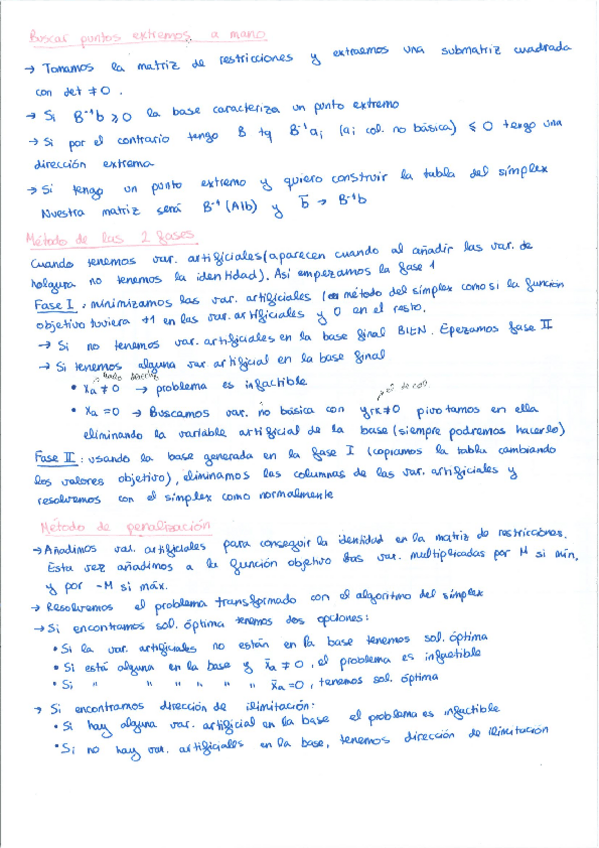 Buscar puntos extremos a mano
→ Tomamos la matriz de restricciones y extraemos una submatriz cuadrada
con det ≠ 0.
→ Si B⁻¹b ≥ 0 la base caracteriza un punto extremo
→ Si por el contrario tengo B tq B⁻¹aⱼ (aⱼ col. no básica) ≤ 0 tengo una
dirección extrema
→ Si tengo un punto extremo y quiero construir la tabla del símplex
Nuestra matriz será B⁻¹(A|b) y b̄ → B⁻¹b
Método de las 2 fases
Cuando tenemos var. artificiales (aparecen cuando al añadir las var. de
holgura no tenemos la identidad). Así empezamos la fase 1
Fase I : minimizamos las var. artificiales (método del símplex como si la función
objetivo tuviera +1 en las var. artificiales y 0 en el resto.
→ Si no tenemos var. artificiales en la base final BIEN. Epezamos fase II
→ Si tenemos alguna var artificial en la base final
• xₐ ≠ 0 → problema es infactible
• xₐ = 0 → Buscamos var. no básica con yrk ≠ 0 pivotamos en ella
eliminando la variable artificial de la base (siempre podremos hacerlo)
Fase II : usando la base generada en la fase I (copiamos la tabla cambiando
los valores objetivo), eliminamos las columnas de las var. artificiales y
resolvemos con el símplex como normalmente
Método de penalización
→ Añadimos var. artificiales para conseguir la identidad en la matriz de restricciones.
Esta vez añadimos a la función objetivo las var. multiplicadas por M si mín,
y por -M si máx.
→ Resolvemos el problema transformado con el algoritmo del símplex
→ Si encontramos sol. óptima tenemos dos opciones:
• Si la var. artificiales no están en la base tenemos sol. óptima
• Si está alguna en la base y x̄ₐ ≠ 0, el problema es infactible
• Si " " " " " " x̄ₐ = 0, tenemos sol. óptima
→ Si encontramos dirección de ilimitación:
• Si hay alguna var. artificial en la base el problema es infactible
• Si no hay var. artificiales en la base, tenemos dirección de ilimitación